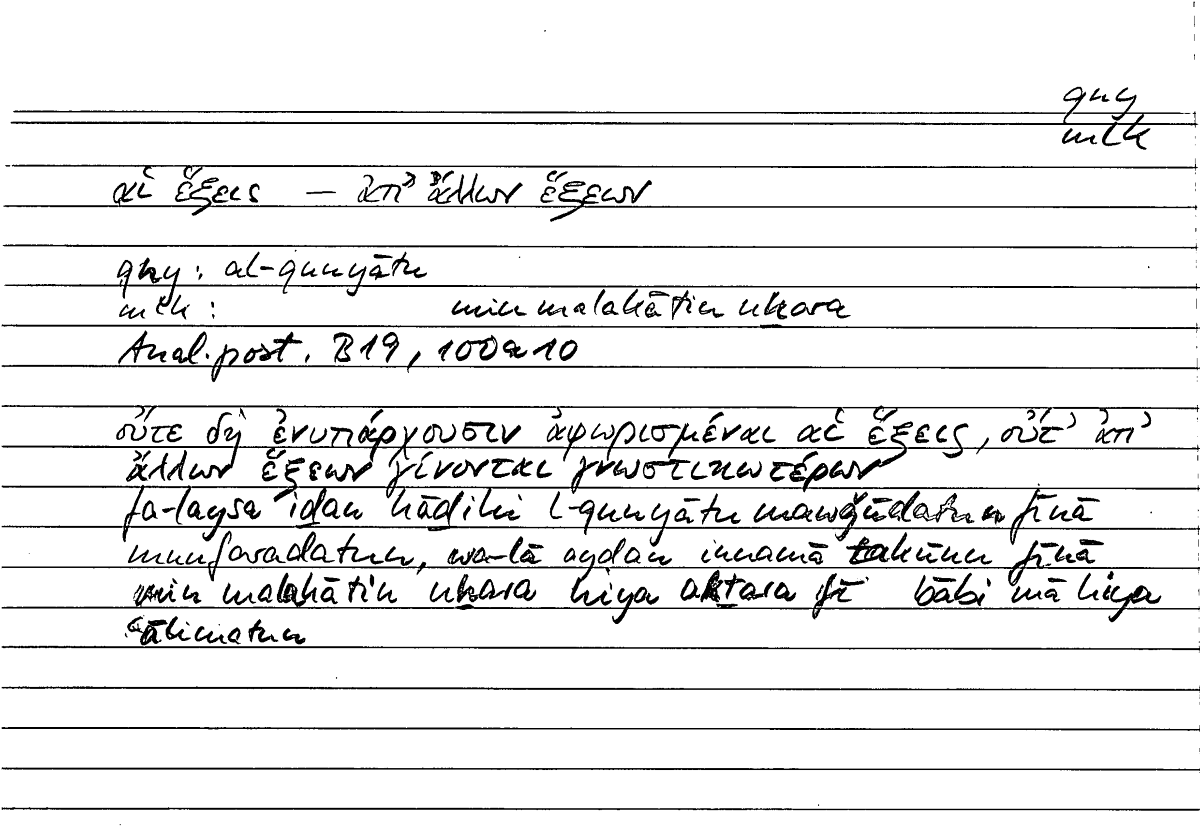 qny
mlk
αἱ ἕξεις — ἀπ' ἄλλων ἕξεων
qny: al-qunyātu
mlk: min malakātin uḫara
Anal. post. B19, 100a10
οὔτε δὴ ἐνυπάρχουσιν ἀφωρισμέναι αἱ ἕξεις, οὔτ' ἀπ'
ἄλλων ἕξεων γίνονται γνωστικωτέρων
fa-laysa iḏan hāḏihi l-qunyātu mawǧūdatun fīnā
munfaradatun, wa-lā ayḍan innamā takūnu fīnā
min malakātin uḫara hiya akṯara fī bābi mā hiya
ʿālimatun